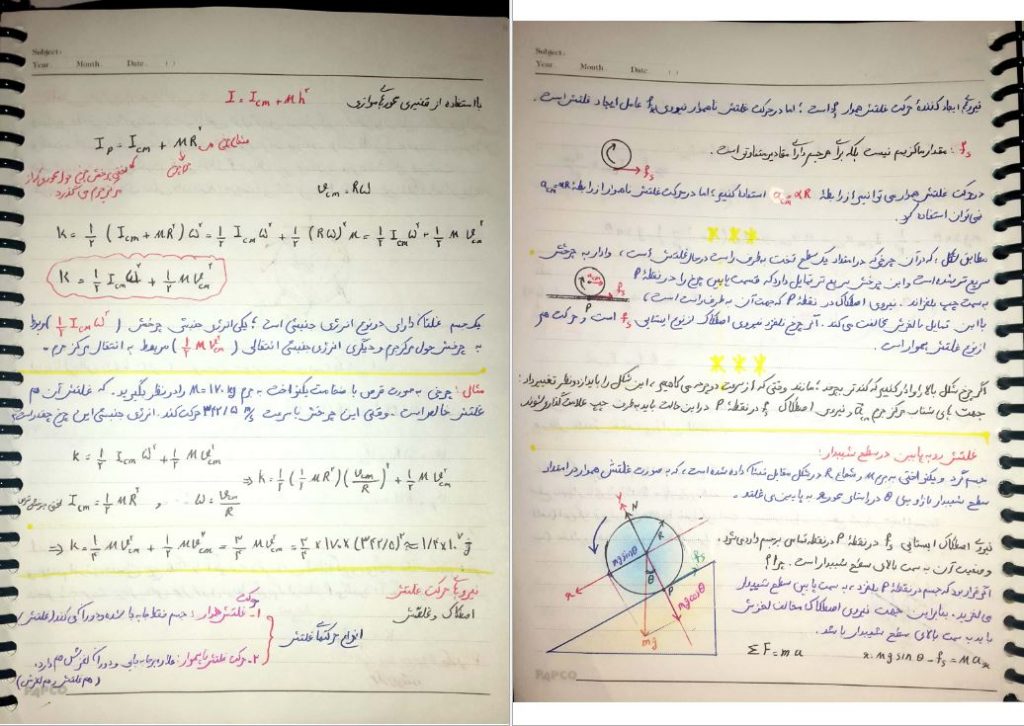 Subject:
Year Month Date ( )
با استفاده از قضیه‌ی محورهای موازی I = Icm + Mh²
Ip = Icm + MR²
جابجایی
vcm = Rω
K = ½ (Icm + MR²) ω² = ½ Icm ω² + ½ (Rω)² M = ½ Icm ω² + ½ M v²cm
K = ½ Icm ω² + ½ M v²cm
یک جسم غلتان دارای دو نوع انرژی جنبشی است ؛ یکی انرژی جنبشی چرخشی ( ½ Icm ω² ) مربوط
به چرخش حول مرکز جرم و دیگری انرژی جنبشی انتقالی ( ½ M v²cm ) مربوط به انتقال مرکز جرم .
مثال : چرخی به صورت قرص با ضخامت یکنواخت به جرم M = ۱۷۰ kg را در نظر بگیرید . که غلتش آن هم
غلتش خالص است . وقتی این چرخ با سرعت ۳۴۲/۵ m/s حرکت کند . انرژی جنبشی این چرخ چقدر است؟
K = ½ Icm ω² + ½ M v²cm
⇒ K = ½ (½ MR²) (vcm/R)² + ½ M v²cm
Icm = ½ MR² , ω = vcm/R
⇒ K = ¼ M v²cm + ½ M v²cm = ¾ M v²cm = ¾ × ۱۷۰ × (۳۴۲/۵)² ≈ ۱/۴ × ۱۰⁷ j
نیروهای حرکت غلتش
اصطکاک و غلتش
انواع حرکتهای غلتش
۱- حرکت غلتش هموار : جسم فقط
۲- حرکت غلتش ناهموار : علاوه بر جابه‌جایی و دوران لغزش هم دارد .
(هم غلتش ، هم لغزش)
PAPCO
Subject:
Year Month Date ( )
نیروی ایجاد کننده‌ی حرکت غلتش هموار fs است ؛ اما در حرکت غلتش ناهموار نیروی fk عامل ایجاد غلتش است .
fs : مقدار ماکزیمم نیست بلکه برای هر جسم دارای مقادیر متفاوتی است .
fs
در حرکت غلتش هموار می توانیم از رابطه‌ی acm = αR استفاده کنیم ؛ اما در حرکت غلتش ناهموار از رابطه‌ی acm = αR
نمی‌توان استفاده کرد .
مطابق شکل ، که در آن چرخی که در امتداد یک سطح تخت به طرف راست در حال غلتش است ، وادار به چرخش
سریع تر شده است و این چرخش سریع تر تمایل دارد که قسمت پایین چرخ را در نقطه‌ی P
به سمت چپ بلغزاند . نیروی اصطکاک در نقطه‌ی P که جهت آن به طرف راست است ،
acm
fs
P
با این تمایل به لغزش مخالفت می کند . اگر چرخ نلغزد نیروی اصطکاک از نوع ایستایی fs است و حرکت هم
از نوع غلتش هموار است .
اگر چرخ شکل بالا را وادار کنیم که کندتر بچرخد ؛ مانند وقتی که از سرعت دوچرخه می کاهیم ، این شکل را باید از دو نظر تغییر داد :
جهت های شتاب مرکز جرم acm و نیروی اصطکاک fs در نقطه‌ی P در این حالت باید به طرف چپ علامت گذاری شوند
غلتش رو به پایین در سطح شیبدار :
جسم گرد و یکنواختی به جرم M و شعاع R در شکل مقابل نشان داده شده است ، که به صورت غلتش هموار در امتداد
سطح شیبدار با زاویه‌ی θ در راستای محور x به پایین می غلتد .
نیروی اصطکاک ایستایی fs در نقطه‌ی P در نقطه تماس بر جسم وارد می‌شود .
و جهت آن به سمت بالای سطح شیبدار است . چرا؟
اگر قرار بود که جسم در نقطه‌ی P بلغزد ، به سمت پایین سطح شیبدار
می لغزید . بنابراین جهت نیروی اصطکاک مخالف لغزش
باید به سمت بالای سطح شیبدار باشد .
y
N
R
fs
mg sinθ
θ
P
x
mg cosθ
mg
ΣF = ma
x: mg sinθ - fs = Max
PAPCO